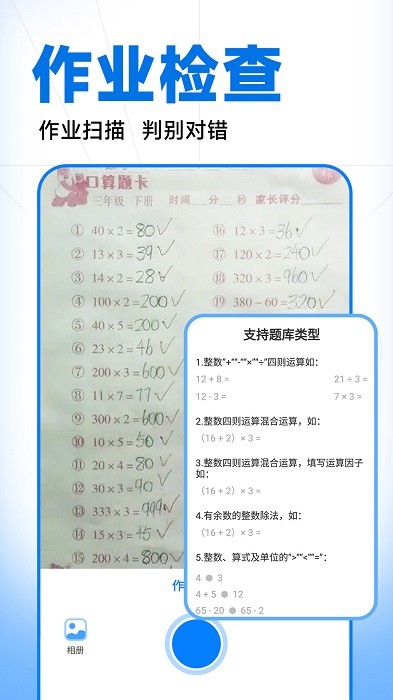 作业检查
作业扫描 判别对错
口算题卡
三年级 下册 时间 分 秒 家长评分
① 40×2=80✓
② 13×3=39✓
③ 14×2=28✓
④ 100×2=200✓
⑤ 40×5=200✓
⑥ 23×2=46✓
⑦ 200×3=600✓
⑧ 11×7=77✓
⑨ 300×2=600✓
⑩ 10×5=50✓
⑪ 20×4=80✓
⑫ 30×3=90✓
⑬ 333×3=999✓
⑭ 15×3=45✓
⑮ 200×4=800✓
⑯ 12×3=36✓
⑰ 120×2=240✓
⑱ 320×3=960✓
⑲ 380-60=320✓
支持题库类型
1.整数"+""-""×""÷"四则运算如：
12+8= 21÷3=
12-3= 7×3=
2.整数四则运算混合运算，如：
（16+2）×3=
3.整数四则运算混合运算，填写运算因子
如：
（16+2）×3=
4.有余数的整数除法，如：
（16+2）×3=
5.整数、算式及单位的">""<""="：
4 ● 3
4+5 ● 12
65-20 ● 65-2
作
相册